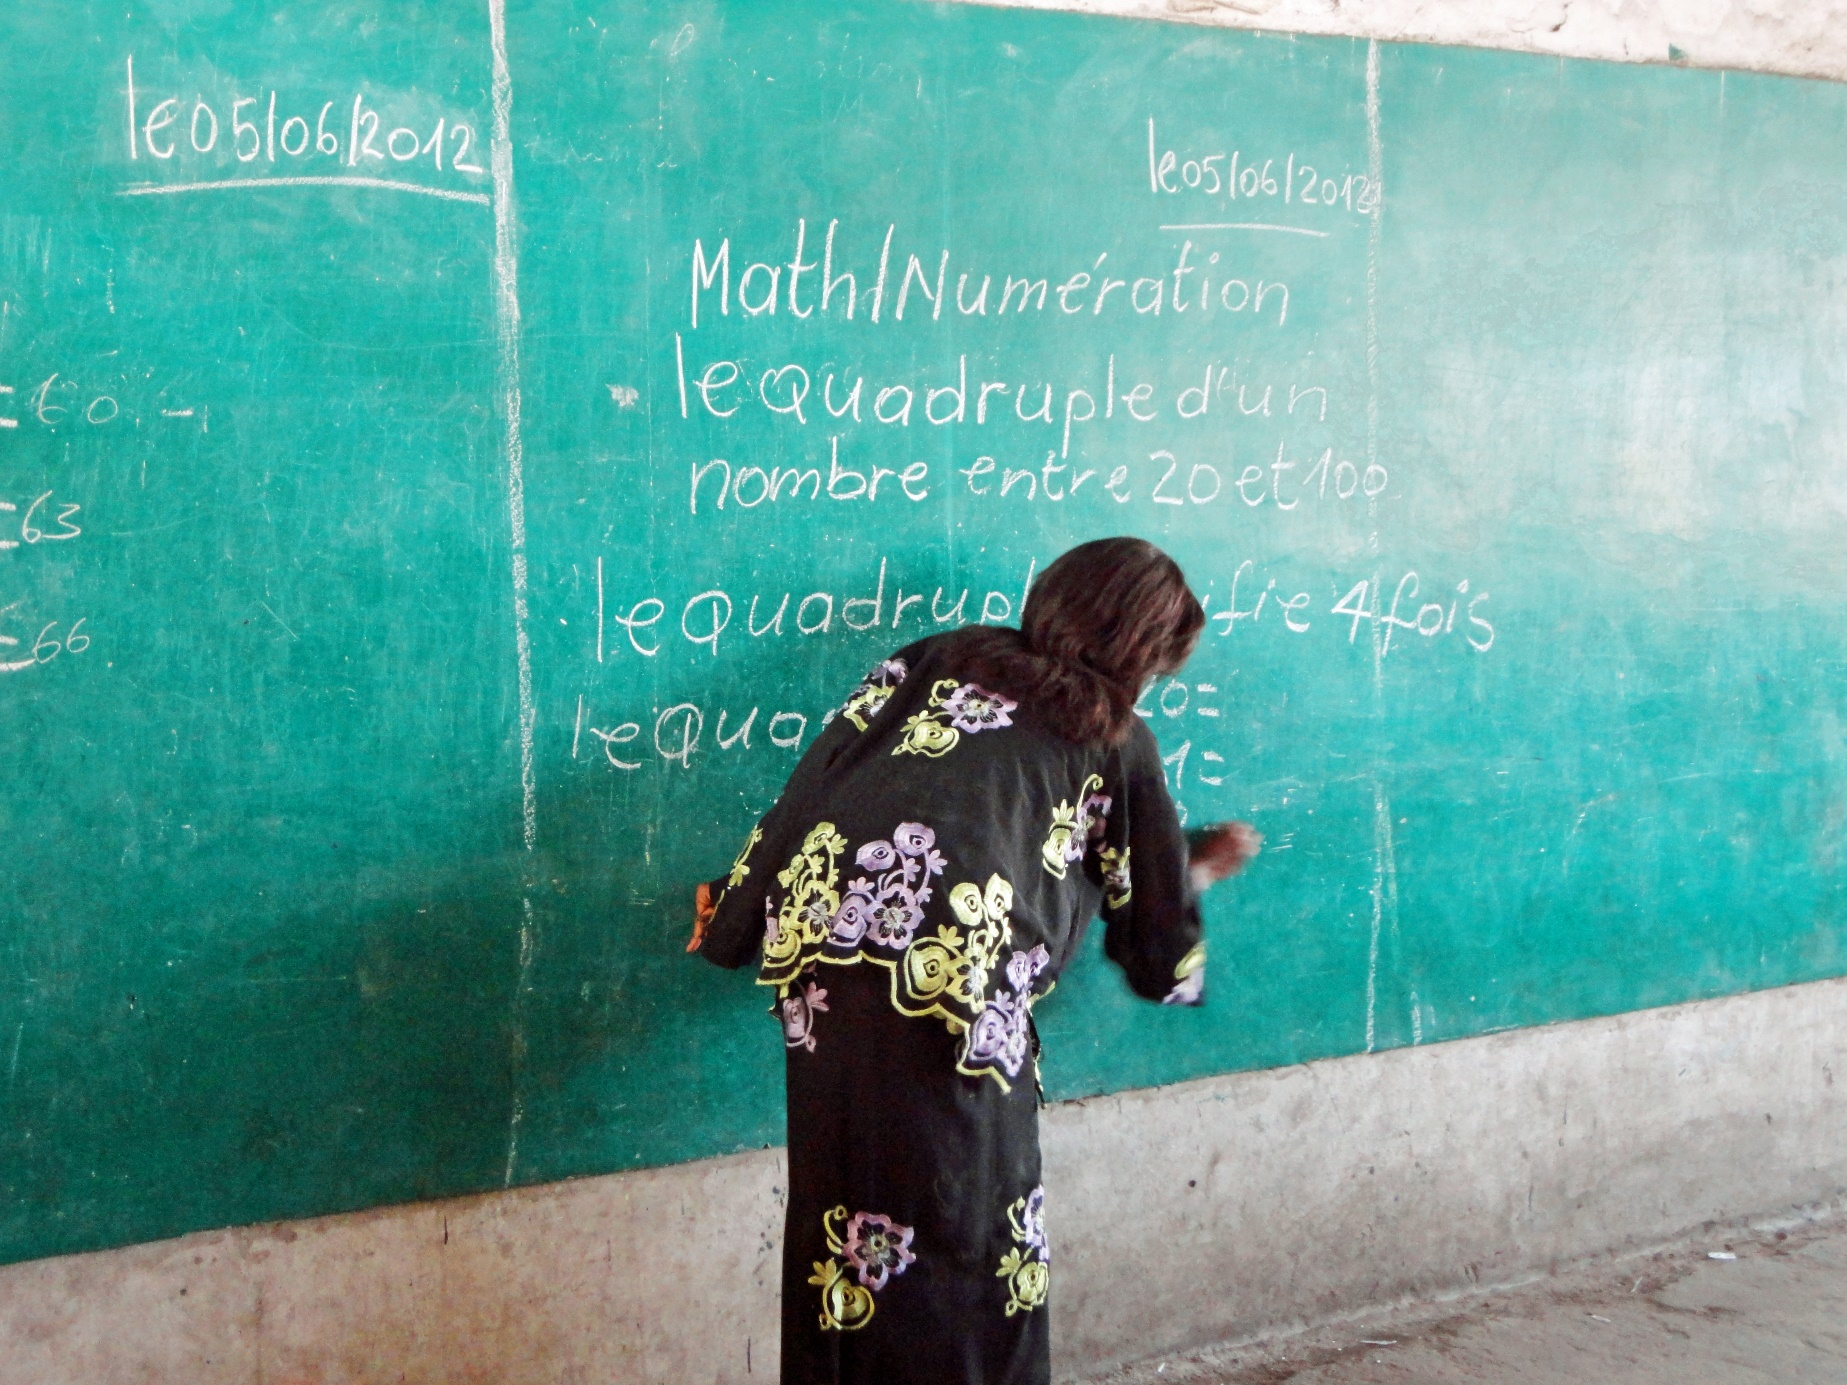 le 05/06/2012
=60
=63
=66
le 05/06/2012
Math/Numération
le quadruple d'un
nombre entre 20 et 100
le quadrupl ifie 4 fois
le qua 20=
1=